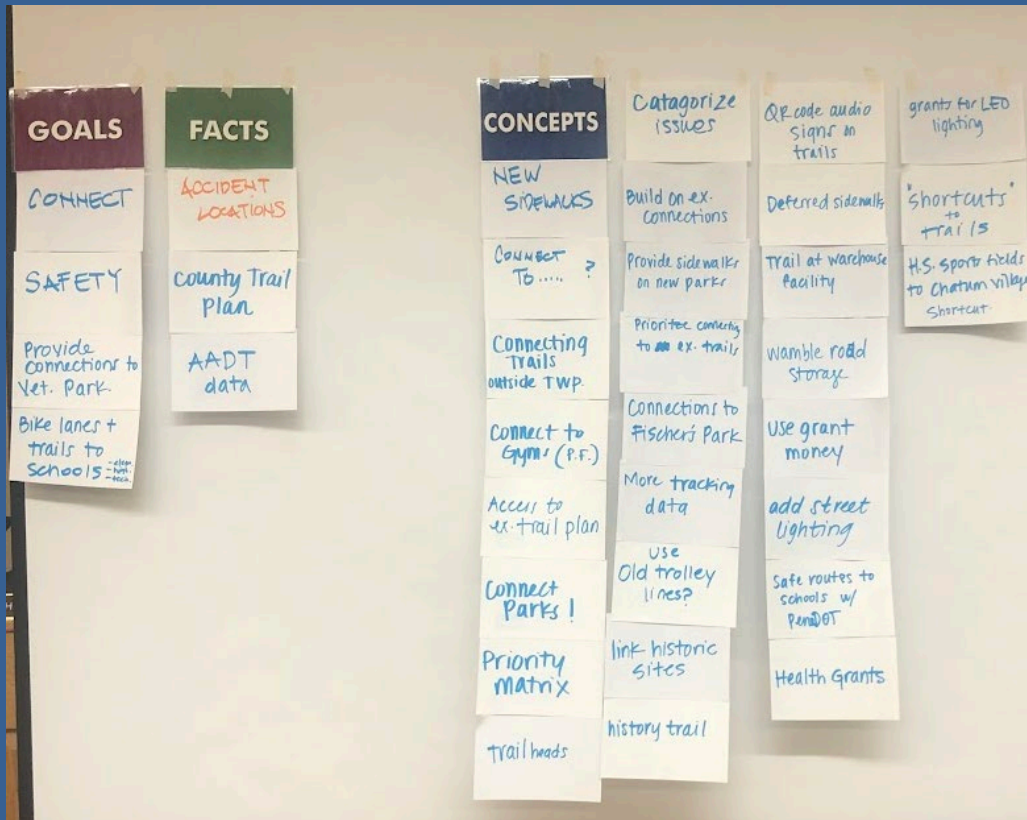 GOALS
CONNECT
SAFETY
Provide
connections to
Vet. Park.
Bike lanes +
trails to
schools -elem.
-tech.
FACTS
ACCIDENT
LOCATIONS
County Trail
Plan
AADT
data
CONCEPTS
NEW
SIDEWALKS
CONNECT
TO..... ?
Connecting
Trails
outside TWP.
Connect to
Gyms (P.F.)
Access to
ex. trail plan
Connect
Parks!
Priority
Matrix
trailheads
Catagorize
issues
Build on ex.
Connections
Provide sidewalks
on new parks
connecting
to ex. trails
Connections to
Fischer's Park
More tracking
data
use
Old trolley
lines?
link historic
sites
history trail
QR code audio
signs on
trails
Deferred sidewalks
Trail at warehouse
facility
Wamble road
storage
use grant
money
add street
lighting
Safe routes to
schools w/
PennDOT
Health Grants
grants for LED
lighting
"shortcuts"
to
trails
H.S. sports fields
to Chatum village
shortcut.